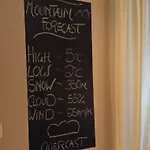 MOUNTAIN
FORECAST
HIGH - 5°C
LOW - 2°C
SNOW - 350m
CLOUD - 55%
WIND - 25mph
OVERCAST